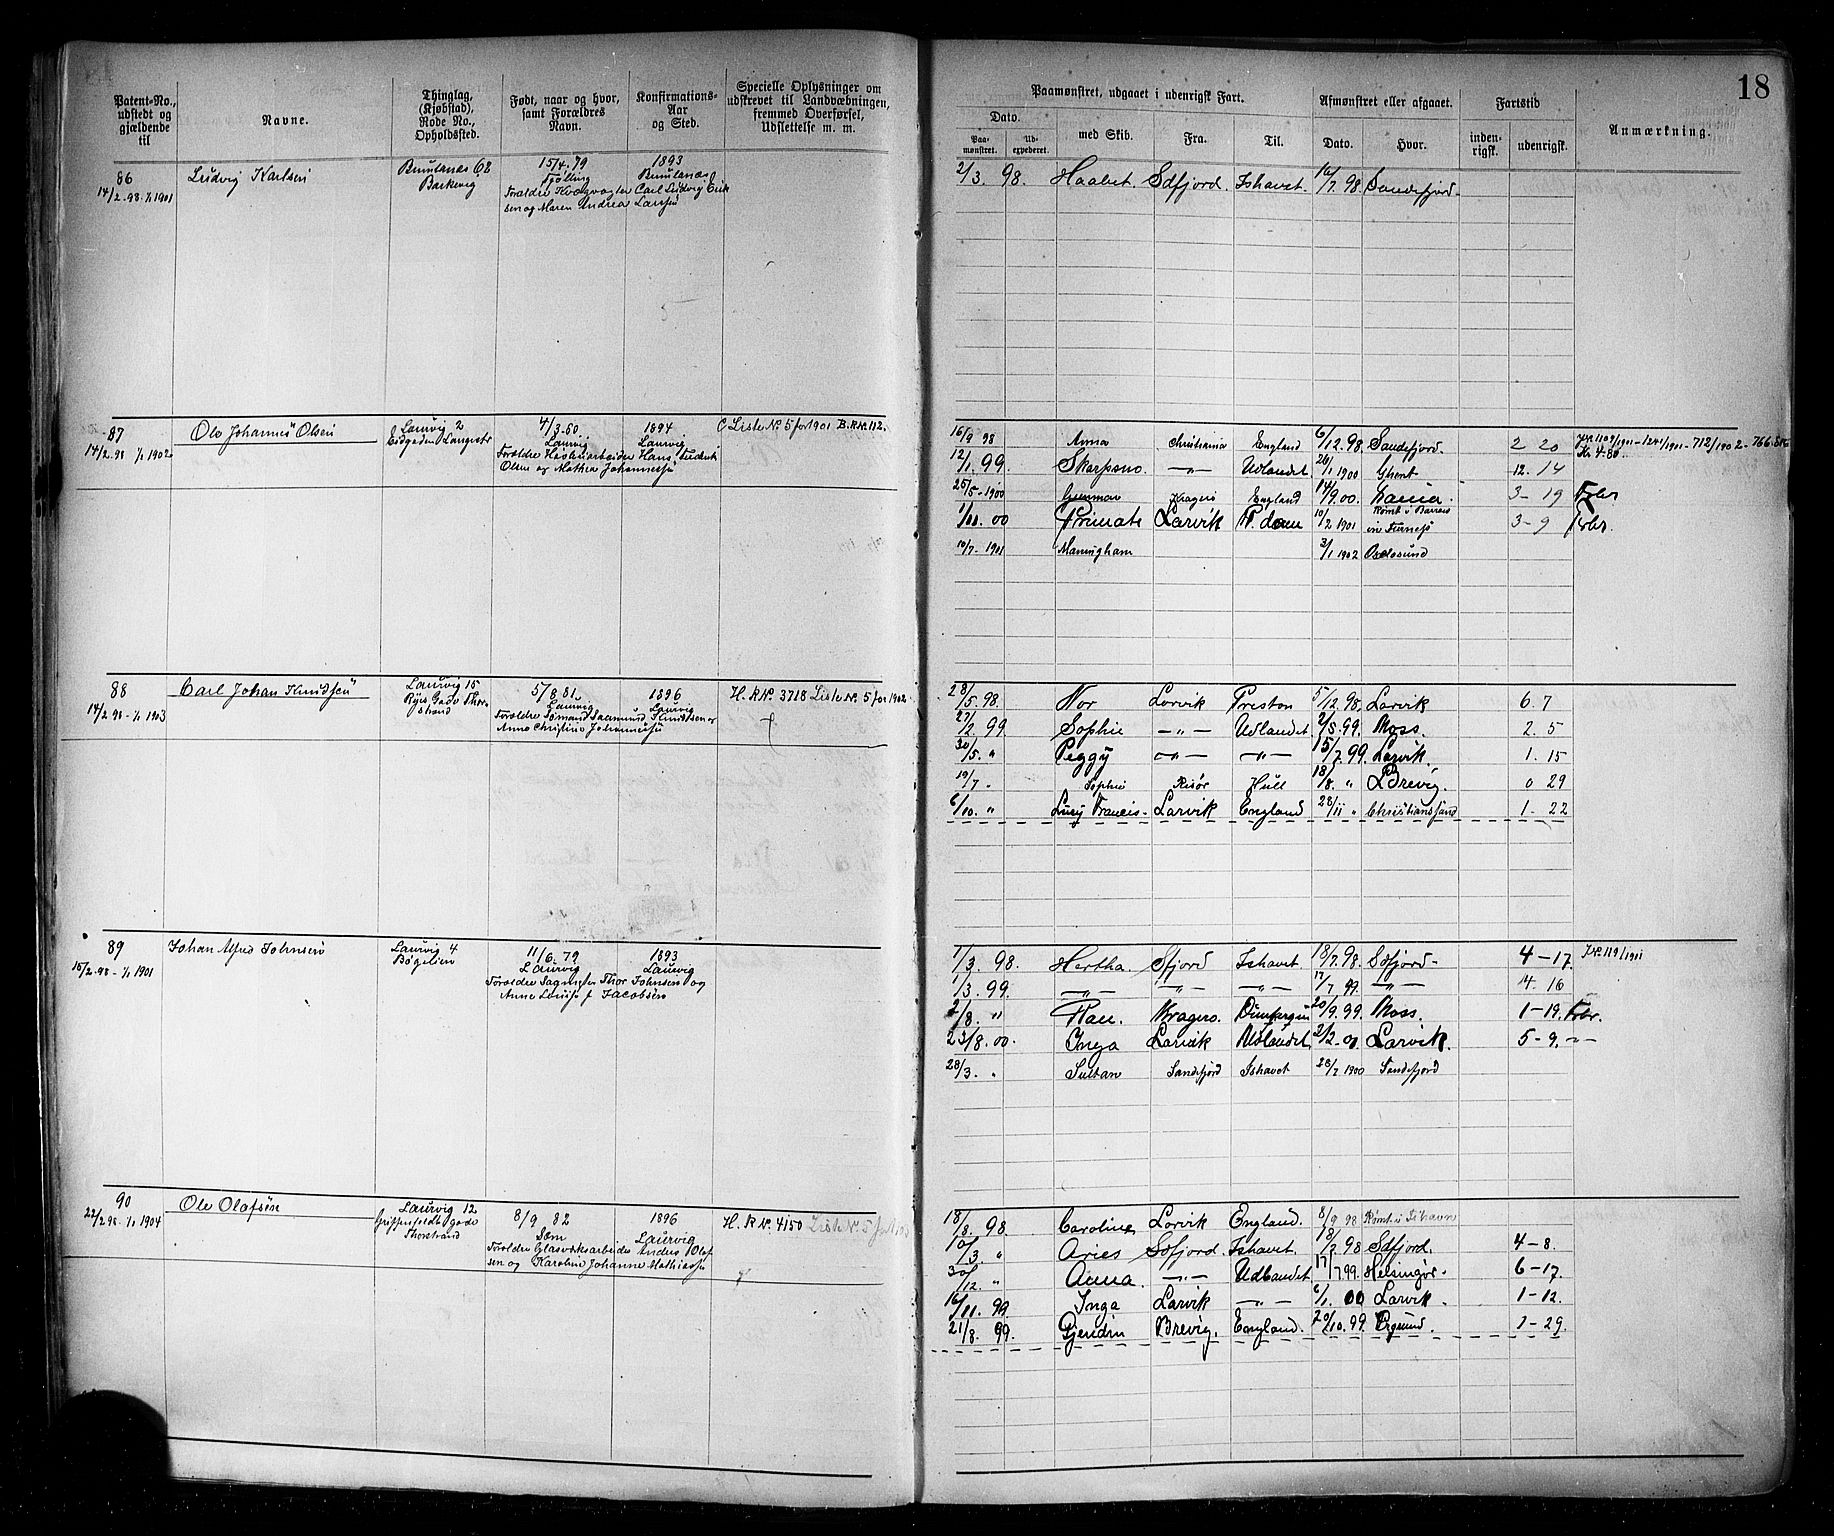 18
Patent-No., udstedt og gjældende til
Navne.
Thinglag, (Kjøbstad), Rode No., Opholdssted.
Født, naar og hvor, samt Forældres Navn.
Konfirmations-Aar og Sted.
Specielle Oplysninger om udskrevet til Landvæbningen, fremmed Overførsel, Udslettelse m. m.
Paamønstret, udgaaet i udenrigsk Fart.
Dato.
Paamønstret.
Udexpederet.
med Skib.
Fra.
Til.
Afmønstret eller afgaaet.
Dato.
Hvor.
Fartstid
indenrigsk.
udenrigsk.
Anmærkning.
86
14/2-98-1/1 1901
Ludvig Karlsen
Brunlanæs 68
Barkevig
15/4-79
Tjølling
1893
Brunlanæs
Forældre Kvægvogter Carl Ludvig Erik
sen og Maren Andrea Larsen
2/3. 98. Haabet Sdfjord. Ishavet. 16/7 98. Sandefjord
87
14/2-98 1/1 1902
Ole Johannes Olsen
Laurvig 2
Eidgaden Langestr
4/3-80
Laurvig
1894
Laurvig
Forældre Høvleriarbeider Hans Fredrik
Olsen og Mathea Johannesen
C Liste No 5 for 1901 B. R No 112.
16/9 98 Anna Christiania England 6/12.98. Sandefjord. 2 20 1109/1901-1241/1901-712/1902-766
Kr 4-80
12/1. 99. Skarpsno. -"- Udlandet. 26/1 1900 Ghent 12. 14
25/5-1900 Gunnvor Kragerø England 14/9.00. 3-19 Forbr
1/11. 00 Primate Larvik 10/2 1901 Rømt i Barrow in Furness 3-9 Forbr.
10/7-1901 Manningham 3/1 1902 Oxelosund
88
14/2-98-1/1 1903
Carl Johan Knudsen
Laurvig 15
Ryes Gade Thor
strand
5/8 81
Laurvig
1896
Laurvig
Forældre Sømand Saamund Knudsen og
Anne Christine Johannesen
H. R No. 3718 Liste No. 5 for 1902
28/5. 98. Nor Larvik Preston 5/12 98. Larvik 6. 7
27/2. 99. Sophie -"- Udlandet 2/5. 99. Moss. 2. 5
30/5. " Peggy -"- -"- 15/7. 99. Larvik. 1. 15
19/7 " Sophie Risør Hull 18/8. " Brevig. 0 29
6/10. " Lucy Francis Larvik England 28/11 " Christianssand 1. 22
89
15/2-98-1/1 1901
Johan Alfred Johnsen
Laurvig 4
Bøgelien
11/6. 79
Laurvig
1893
Laurvig
Forældre Sagmester Thor Johnsen og
Anne Louise f Jacobsen
1/3. 98. Hertha. Sfjord Ishavet 18/7.98. Sdfjord 4-17. 119/1901
1/3. 99. -"- -"- -"- 17/7 99. -"- 4. 16
2/8. " Ran. Kragerø. 20/9. 99. Moss. 1-19. Forbr.
23/8. 00. Inga Larvik Udlandet. 2/2. 01. Larvik. 5-9. -"-
28/3. " Sultan Sandefjord Ishavet 28/7 1900 Sandefjord
90
22/2-98. 1/1 1904
Ole Olafsen
Laurvig 12
Griffenfeldt gade
Thorstrand
8/9 82
Sæm
1896
Laurvig
Forældre Glasværksarbeider Anders Olaf
sen og Karoline Johanne Mathiasen
H. R No. 4150 Liste No 5 for 1903
18/8. 98. Caroline, Larvik England. 8/9 98 Rømt i
10/3. " Aries Sdfjord. Ishavet. 18/7 98 Sdfjord. 4-8.
30/12. " Anna. -"- Udlandet 17/7 99. Helsingør. 6-17.
16/11. 99 Inga Larvik -"- 6/1. 00 Larvik. 1-12.
21/8. 99. Gjendin Brevig. England. 20/10. 99. 1-29.